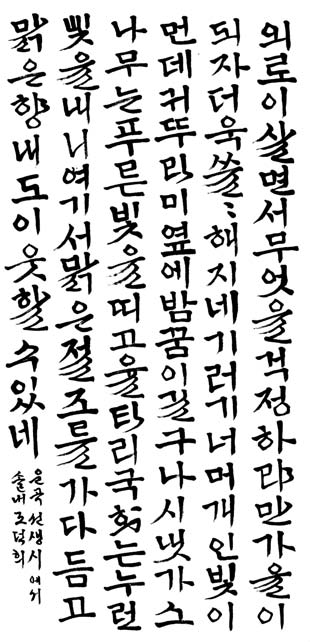 외로이살면서무엇을걱정하랴만가을이
되자더욱쓸〻해지네기러기너머개인빛이
먼데귀뚜라미옆에밤꿈이길구나시냇가소
나무는푸른빛을띠고울타리국화는누런
빛을내니여기서맑은절조를가다듬고
맑은향내도이웃할수있네
운곡선생시에서
솔내조덕희